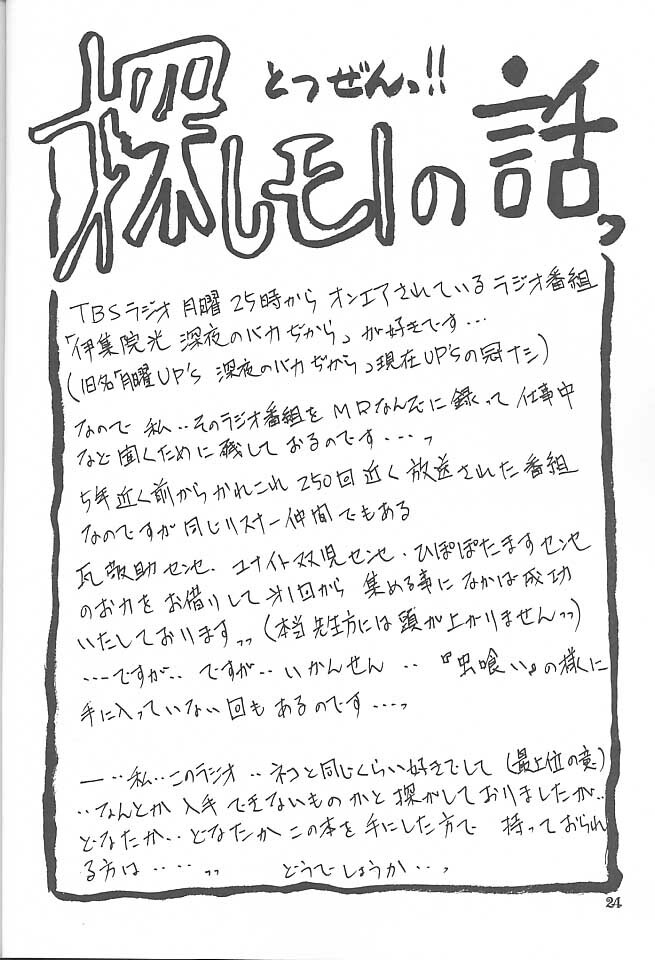 とつぜんっ!!
探しモノの話っ
TBSラジオ 月曜 25時から オンエアされている ラジオ番組
「伊集院光 深夜のバカぢから」が好きです…
(旧名「月曜UP's 深夜のバカぢから」現在UP'sの冠ナシ)
なので 私‥そのラジオ番組を MDなんぞに録って 仕事中
など 聞くために 残して おるのです‥‥っ
5年近く前からかれこれ 250回近く 放送された 番組
なのですが 同じリスナー仲間でもある
瓦敬助センセ. ユナイト双児センセ・ひぽぽたますセンセ
のお力を お借りして 才1回から 集める事に なかば成功
いたしております〟 (本当先生方には 頭が上がりませんっっ)
‥‥ですが‥ ですが‥ いかんせん ‥ 『虫喰い』の様に
手に入っていない 回も あるのです‥‥っ
ー‥私‥このラジオ ‥ネコと同じくらい好きでして (最上位の意)
‥なんとか 入手 できないもの かと 探がしておりましたが‥
どなたか‥ どなたか この本を 手にした方で 持っておられ
る方は ‥‥〟 どうでしょうか‥っ
24